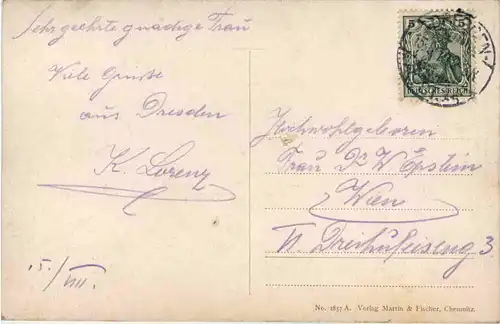 Sehr geehrte gnädige Frau
Viele Grüße
aus Dresden
K. Lorenz
15./VIII.
Hochwohlgeboren
Frau Dr W Epstein
Wien
VI. Dreihufeiseng 3
5
DEUTSCHES REICH
No. 1857 A. Verlag Martin & Fischer, Chemnitz.